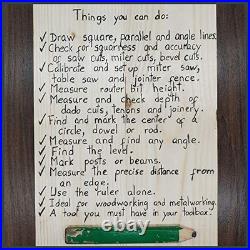 Things you can do:
✓ Draw square, parallel and angle lines.
✓ Check for squareness and accuracy
of saw cuts, miter cuts, bevel cuts.
✓ Calibrate and set up miter saw,
table saw and jointer fence.
✓ Measure router bit height.
✓ Measure and check depth of
dado cuts, tenons and joinery.
✓ Find and mark the center of a
circle, dowel or rod.
✓ Measure and find any angle.
✓ Find the level.
✓ Mark posts or beams.
✓ Measure the precise distance from
an edge.
✓ Use the ruler alone.
✓ Ideal for woodworking and metalworking.
✓ A tool you must have in your toolbox!